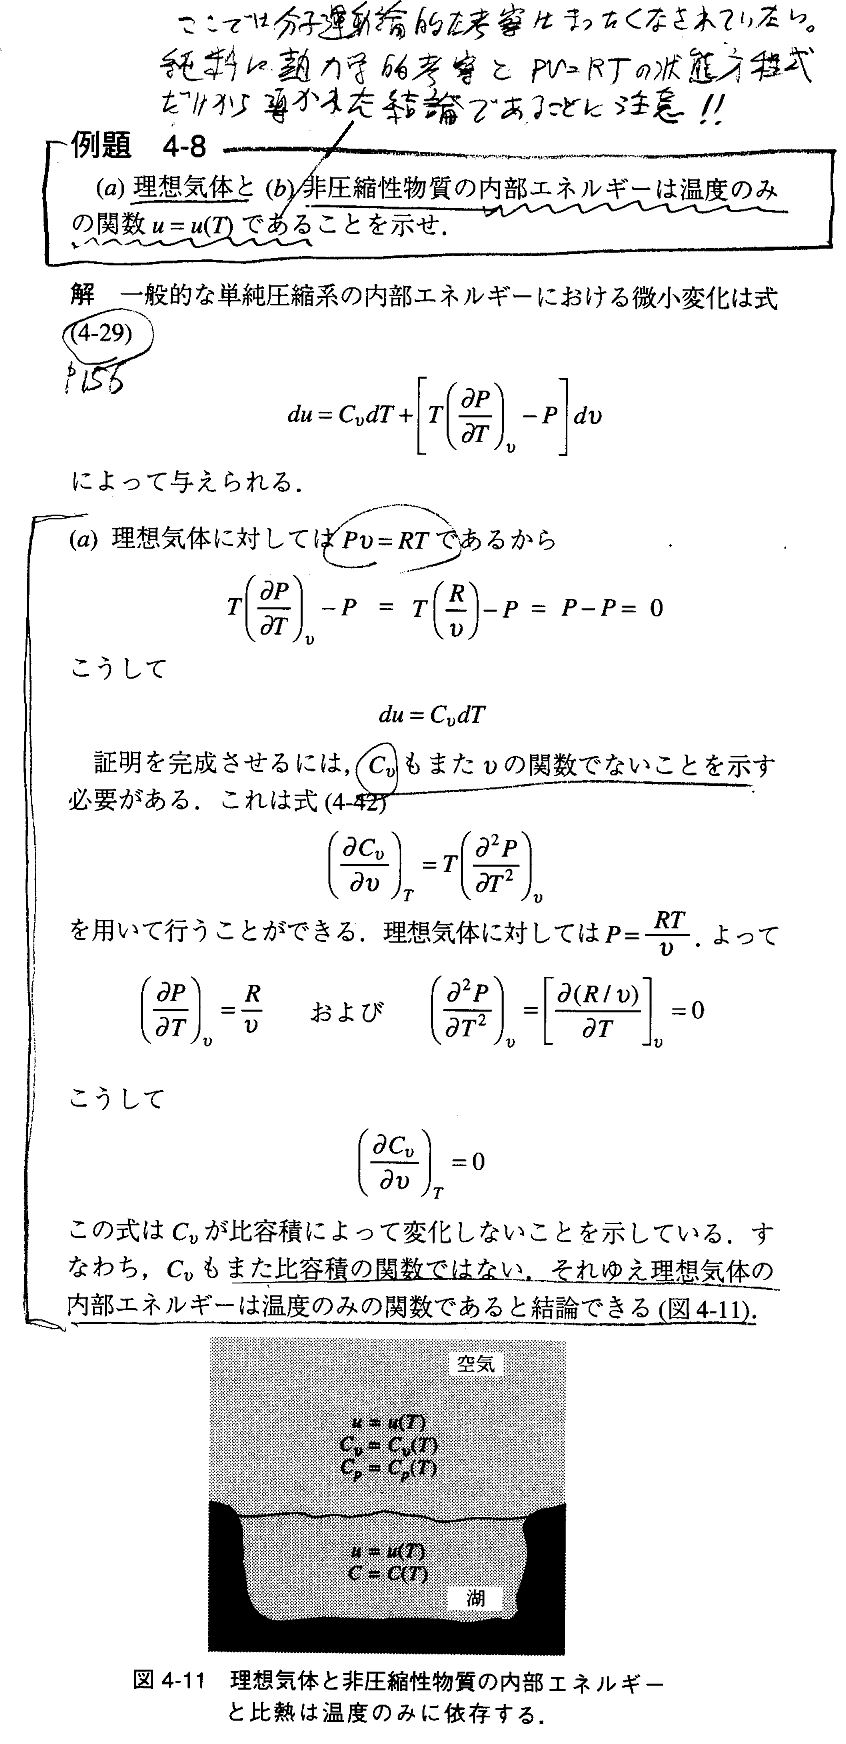 ここでは分子運動論的な考察はまったくなされていない。
純粋に熱力学的考察と PV=RTの状態方程式
だけから導かれた結論であることに注意!!
例題 4-8
(a) 理想気体と (b) 非圧縮性物質の内部エネルギーは温度のみ
の関数 u = u(T) であることを示せ．
解 一般的な単純圧縮系の内部エネルギーにおける微小変化は式
(4-29)
P156
du = CυdT + [T(∂P/∂T)υ − P]dυ
によって与えられる．
(a) 理想気体に対しては Pυ = RT であるから
T(∂P/∂T)υ − P = T(R/υ) − P = P − P = 0
こうして
du = CυdT
証明を完成させるには，Cυ もまた υ の関数でないことを示す
必要がある．これは式 (4-42)
(∂Cυ/∂υ)T = T(∂²P/∂T²)υ
を用いて行うことができる．理想気体に対しては P = RT/υ．よって
(∂P/∂T)υ = R/υ および (∂²P/∂T²)υ = [∂(R/υ)/∂T]υ = 0
こうして
(∂Cυ/∂υ)T = 0
この式は Cυ が比容積によって変化しないことを示している．す
なわち，Cυ もまた比容積の関数ではない．それゆえ理想気体の
内部エネルギーは温度のみの関数であると結論できる (図 4-11)．
空気
u = u(T)
Cυ = Cυ(T)
Cp = Cp(T)
u = u(T)
C = C(T)
湖
図 4-11 理想気体と非圧縮性物質の内部エネルギー
と比熱は温度のみに依存する．